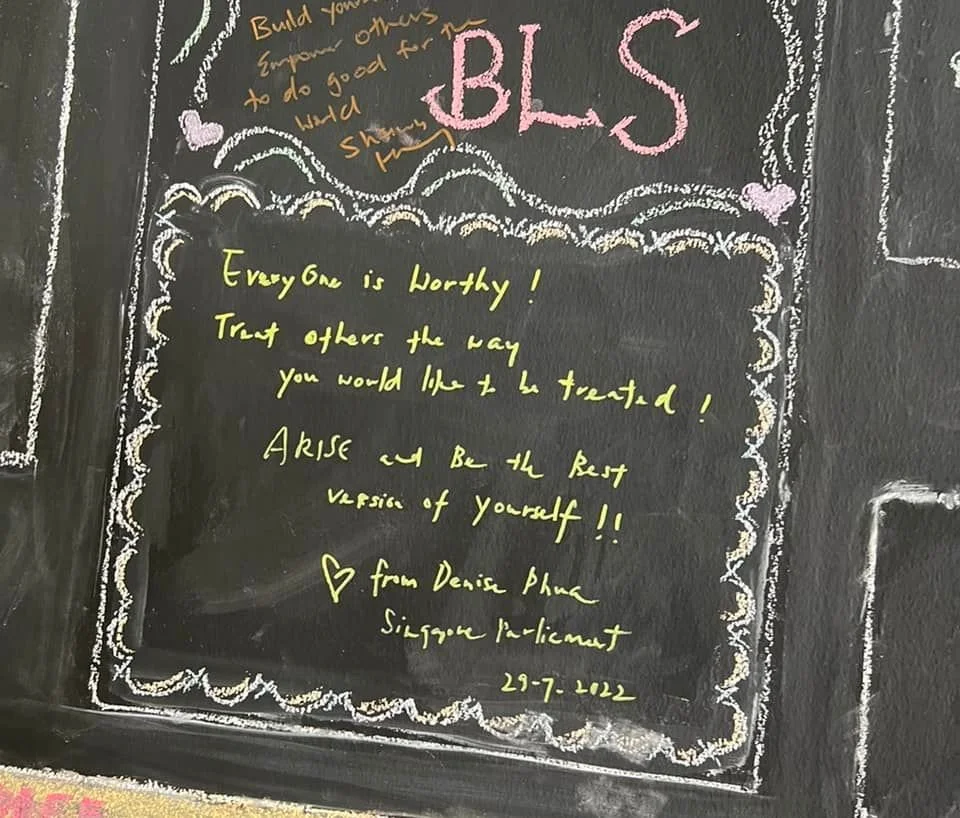 Build
Empower others
to do good for the
World
BLS
EveryOne is Worthy !
Treat others the way
you would like to be treated !
ARISE and Be the Best
version of yourself !!
♡ from Denise Phua
Singapore Parliament
29-7-2022